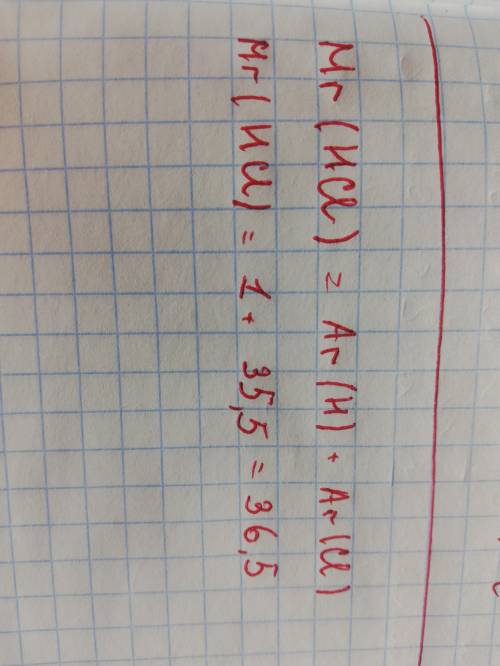 Mr (HCl) = Ar (H) + Ar (Cl)
Mr (HCl) = 1 + 35,5 = 36,5